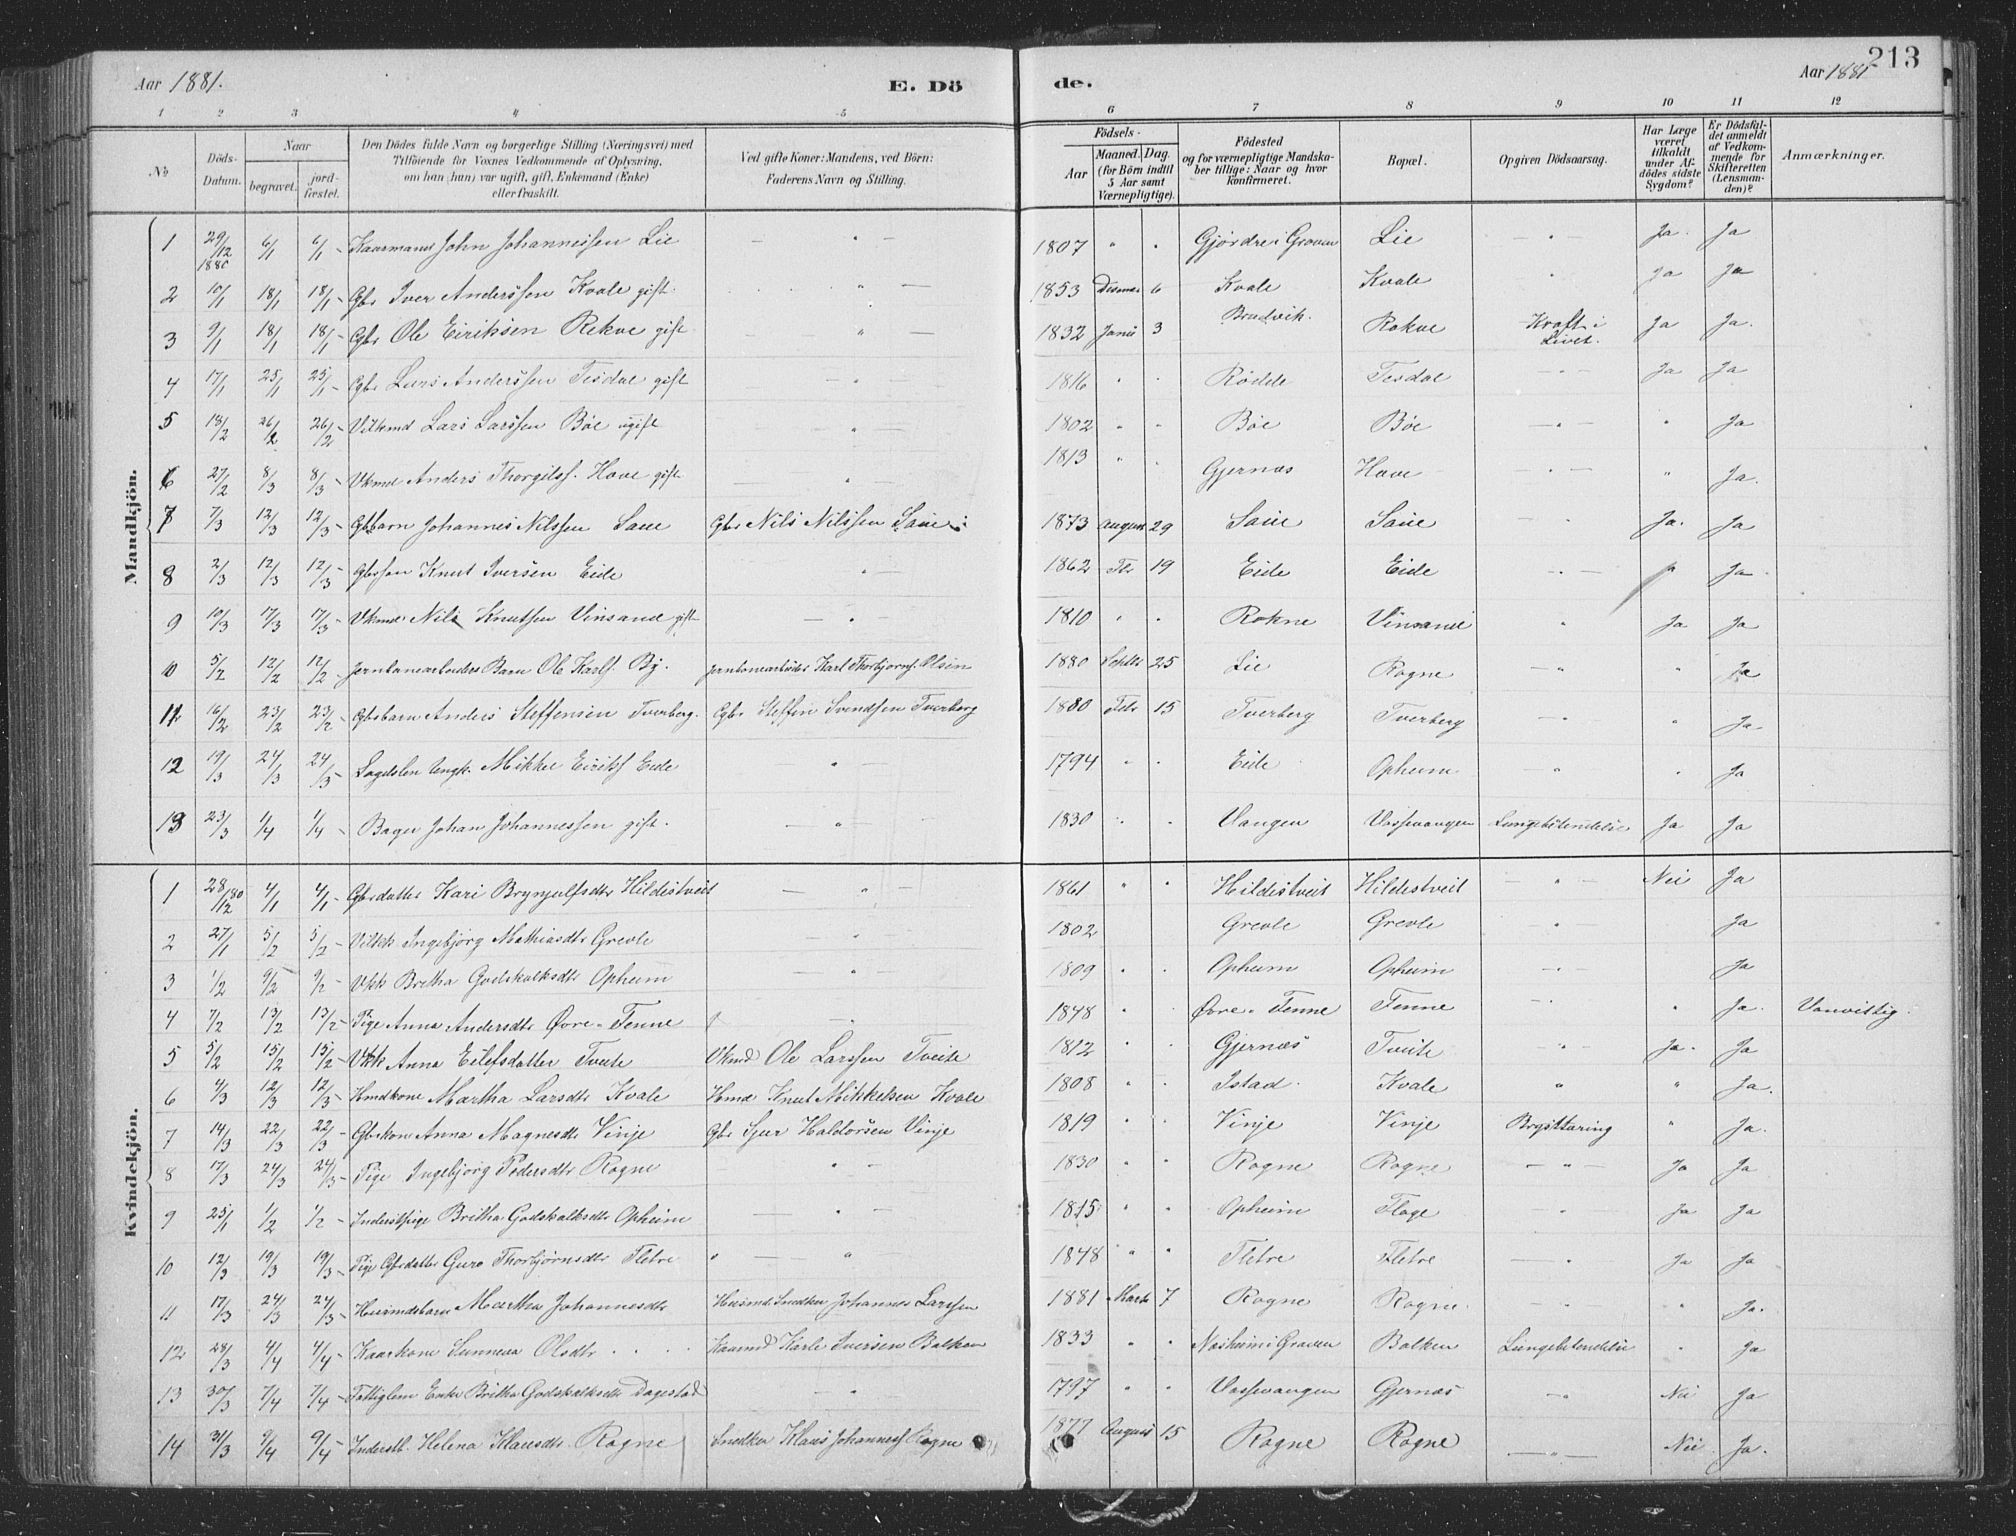 213
Aar 1881. E. Dö de. Aar 1881
1 2 3 4 5 6 7 8 9 10 11 12
No
Döds-Datum.
Naar
begravet.
jord-fæstet.
Den Dödes fulde Navn og borgerlige Stilling (Næringsvei) med
Tilföiende for Voxnes Vedkommende af Oplysning,
om han (hun) var ugift, gift, Enkemand (Enke)
eller fraskilt.
Ved gifte Koner: Mandens, ved Börn:
Faderens Navn og Stilling.
Födsels-
Aar
Maaned. Dag.
(for Börn indtil
5 Aar samt
Værnepligtige).
Födested
og for værnepligtige Mandska-
ber tillige: Naar og hvor
Konfirmeret.
Bopæl.
Opgiven Dödsaarsag.
Har Læge
været
tilkaldt
under Af-
dödes sidste
Sygdom?
Er Dödsfal-
det anmeldt
af Vedkom-
mende for
Skifteretten
(Lensman-
den)?
Anmærkninger.
Mandkjön.
1 29/12 1880 6/1 6/1 Kaarmand John Johannessen Lie — " — 1807 " " Gjørdre i Graven Lie — " — Ja. Ja
2 10/1 18/1 18/1 Gbr Iver Anderssen Kvale gift. " — 1853 6 Kvale Kvale " Ja Ja
3 9/1 18/1 18/1 Gbr Ole Eiriksen Rekve gift " — 1832 Janu 3 Bradvik. Rokve Kræft i Livet. Ja Ja.
4 17/1 25/1 25/1 Gbr Lars Anderssen Tesdal gift — " — 1816 " " Rødde Tesdal — " — Ja Ja
5 18/2 26/2 26/2 Vilkmd Lars Larssen Bøe ugift " 1802 " " Bøe Bøe — " — " Ja
6 27/2 8/3 8/3 Vkmd Anders Thorgilss. Have gift — " — 1813 " " Gjernæs Have — " — " Ja.
7 7/3 12/3 12/3 Gbbarn Johannes Nilssen Saue Gbr Nils Nilssen Saue 1873 August 29 Saue Saue " Ja. Ja
8 2/3 12/3 12/3 Gbsøn Knut Iversen Eide " — 1862 19 Eide Eide — " — Ja
9 10/3 17/3 17/3 Vkmd Nils Knutsen Vinsand gift — " — 1810 " " Rokne Vinsand — " — Ja Ja
10 5/2 12/2 12/2 Jernbanearbeiders Barn Ole Karls. By. Jernbanearbeider Karl Thorbjørns. Olsen 1880 Septbr 25 Lie Rogne " " Ja
11 16/2 23/2 23/2 Gbrbarn Anders Steffensen Tverberg. Gbr Steffen Svendsen Tverberg 1880 Febr 15 Tverberg Tverberg — " — Ja
12 19/3 24/3 24/3 Lægdslem Ungk. Mikkel Eirikss Eide " — 1794 " " Eide Opheim " " Ja
13 23/3 1/4 1/4 Bager Johan Johannessen gift. — " — 1830 " " Vangen Vossevangen Lungebetændelse Ja Ja
Kvindekjön.
1 28/12 80 4/1 4/1 Gbrdatter Kari Brynjulfsdtr Hildestveit — " — 1861 " " Hildestveit Hildestveit — " — Nei Ja
2 27/1 5/2 5/2 Vilkk Ingebjørg Mathiasdtr Grevle " 1802 Grevle Grevle — " — Ja
3 1/2 9/2 9/2 Vkk Britha Godskalksdtr Opheim " 1809 " " Opheim Opheim — " — Ja
4 7/2 13/2 13/2 Pige Anna Andersdtr Øvre-Tenne — " — 1848 " " Øvre-Tenne Tenne " " Ja. Vanvittig.
5 5/2 15/2 15/2 Vkk Anna Eilefsdatter Tveite Vkmd Ole Larssen Tveite 1812 " " Gjernæs Tveite " Ja. Ja
6 4/3 12/3 12/3 Hmdkone Martha Larsdtr Kvale Hmd Knut Mikkelsen Kvale 1808 " " Istad. Kvale " " Ja.
7 14/3 22/3 22/3 Gbrkone Anna Magnesdtr Vinje Gbr Sjur Haldorsen Vinje 1819 " " Vinje Vinje Brysttæring " Ja.
8 17/3 24/3 24/3 Pige Ingebjørg Pedersdtr Rogne " — 1830 " " Rogne Rogne — " — Ja Ja
9 25/1 1/2 1/2 Inderstpige Britha Godskalksdtr Opheim " — 1815 " " Opheim Flage — " — Ja Ja
10 12/3 19/3 19/3 Pige Gbrdatter Guro Thorbjørnsdtr Fletre " — " 1848 " " Fletre Fletre " Ja Ja
11 17/3 24/3 24/3 Husmdsbarn Martha Johannesdtr Husmd. Snedker Johannes Larssen 1881 Marts 7 Rogne Rogne. — " — " Ja.
12 28/3 4/4 4/4 Kaarkone Sunneva Olsdtr Kaarmd Karle Iversen Balken 1833 " " Næsheim i Graven Balken Lungebetændelse " Ja
13 30/3 7/4 7/4 Fattiglem Enke Britha Godskalksdtr Dagestad " 1797 " " Vossevangen Gjernæs " Nei Ja
14 31/3 9/4 9/4 Inderstb. Helena Klausdtr. Rogne Snedker Klaus Johanness Rogne 1877 August 15 Rogne Rogne — " — Nei Ja.